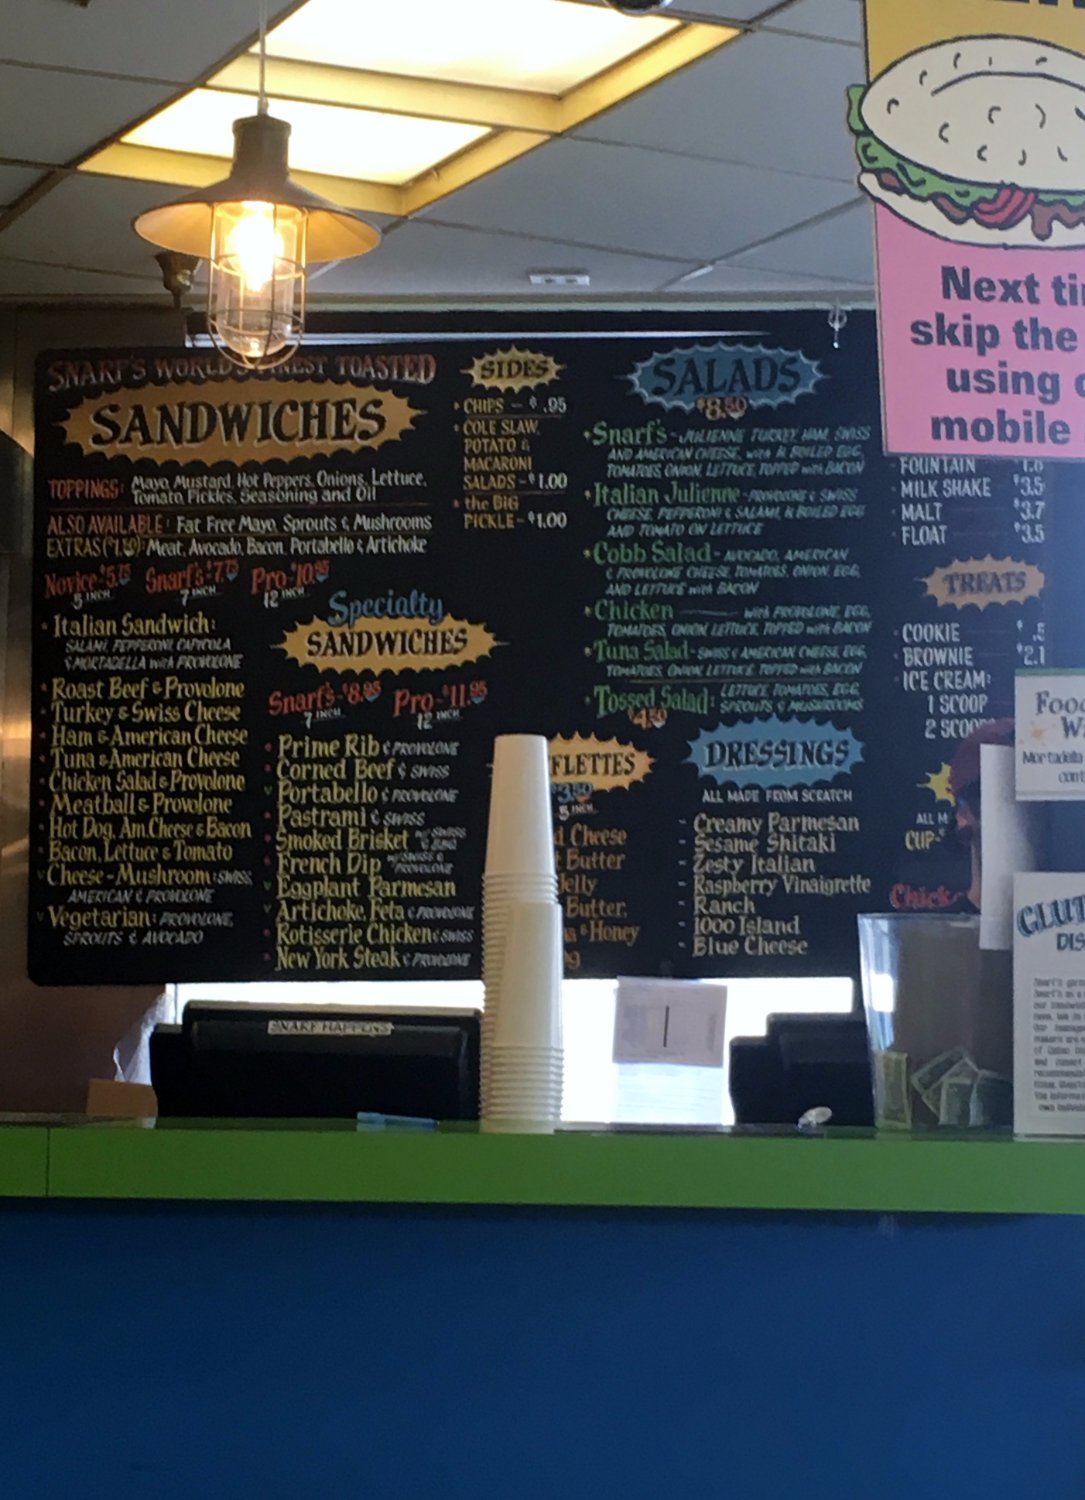 SNARF'S WORLD'S FINEST TOASTED
SANDWICHES
TOPPINGS: Mayo, Mustard, Hot Peppers, Onions, Lettuce,
Tomato, Pickles, Seasoning and Oil
ALSO AVAILABLE: Fat Free Mayo, Sprouts & Mushrooms
EXTRAS ($1.50): Meat, Avocado, Bacon, Portabello & Artichoke
Novice-$5.75 Snarf's-$7.75 Pro-$10.95
5 INCH 7 INCH 12 INCH
Italian Sandwich:
SALAMI, PEPPERONI, CAPICOLA
& MORTADELLA with PROVOLONE
Roast Beef & Provolone
Turkey & Swiss Cheese
Ham & American Cheese
Tuna & American Cheese
Chicken Salad & Provolone
Meatball & Provolone
Hot Dog, Am. Cheese & Bacon
Bacon, Lettuce & Tomato
Cheese-Mushroom: SWISS,
AMERICAN & PROVOLONE
Vegetarian: PROVOLONE,
SPROUTS & AVOCADO
Specialty
SANDWICHES
Snarf's-$8.95 Pro-$11.95
7 INCH 12 INCH
Prime Rib & PROVOLONE
Corned Beef & SWISS
Portabello & PROVOLONE
Pastrami & SWISS
Smoked Brisket w/ SWISS & BBQ
French Dip w/ SWISS & PROVOLONE
Eggplant Parmesan
Artichoke, Feta & PROVOLONE
Rotisserie Chicken & SWISS
New York Steak & PROVOLONE
SIDES
CHIPS - $ .95
COLE SLAW,
POTATO &
MACARONI
SALADS - $1.00
the BIG
PICKLE - $1.00
SALADS
$8.50
Snarf's - JULIENNE TURKEY, HAM, SWISS
AND AMERICAN CHEESE, with A BOILED EGG,
TOMATOES, ONION, LETTUCE, TOPPED with BACON
Italian Julienne - PROVOLONE & SWISS
CHEESE, PEPPERONI & SALAMI, A BOILED EGG
AND TOMATO ON LETTUCE
Cobb Salad - AVOCADO, AMERICAN
& PROVOLONE CHEESE, TOMATOES, ONION, EGG,
AND LETTUCE with BACON
Chicken with PROVOLONE, EGG,
TOMATOES, ONION, LETTUCE, TOPPED with BACON
Tuna Salad - SWISS & AMERICAN CHEESE, EGG,
TOMATOES, ONION, LETTUCE, TOPPED with BACON
Tossed Salad: LETTUCE, TOMATOES, EGG,
$4.50 SPROUTS & MUSHROOMS
FLETTES
5 INCH
Cheese
Butter
Jelly
Butter,
& Honey
DRESSINGS
ALL MADE FROM SCRATCH
- Creamy Parmesan
- Sesame Shitaki
- Zesty Italian
- Raspberry Vinaigrette
- Ranch
- 1000 Island
- Blue Cheese
FOUNTAIN
MILK SHAKE $3.5
MALT $3.7
FLOAT $3.5
TREATS
COOKIE $ .5
BROWNIE $2.1
ICE CREAM:
1 SCOOP
2 SCOO
ALL M
CUP-
Chick
Next ti
skip the
using
mobile
Food
W
Mortadella
cont
GLUT
DIS
SNARF HAPPENS